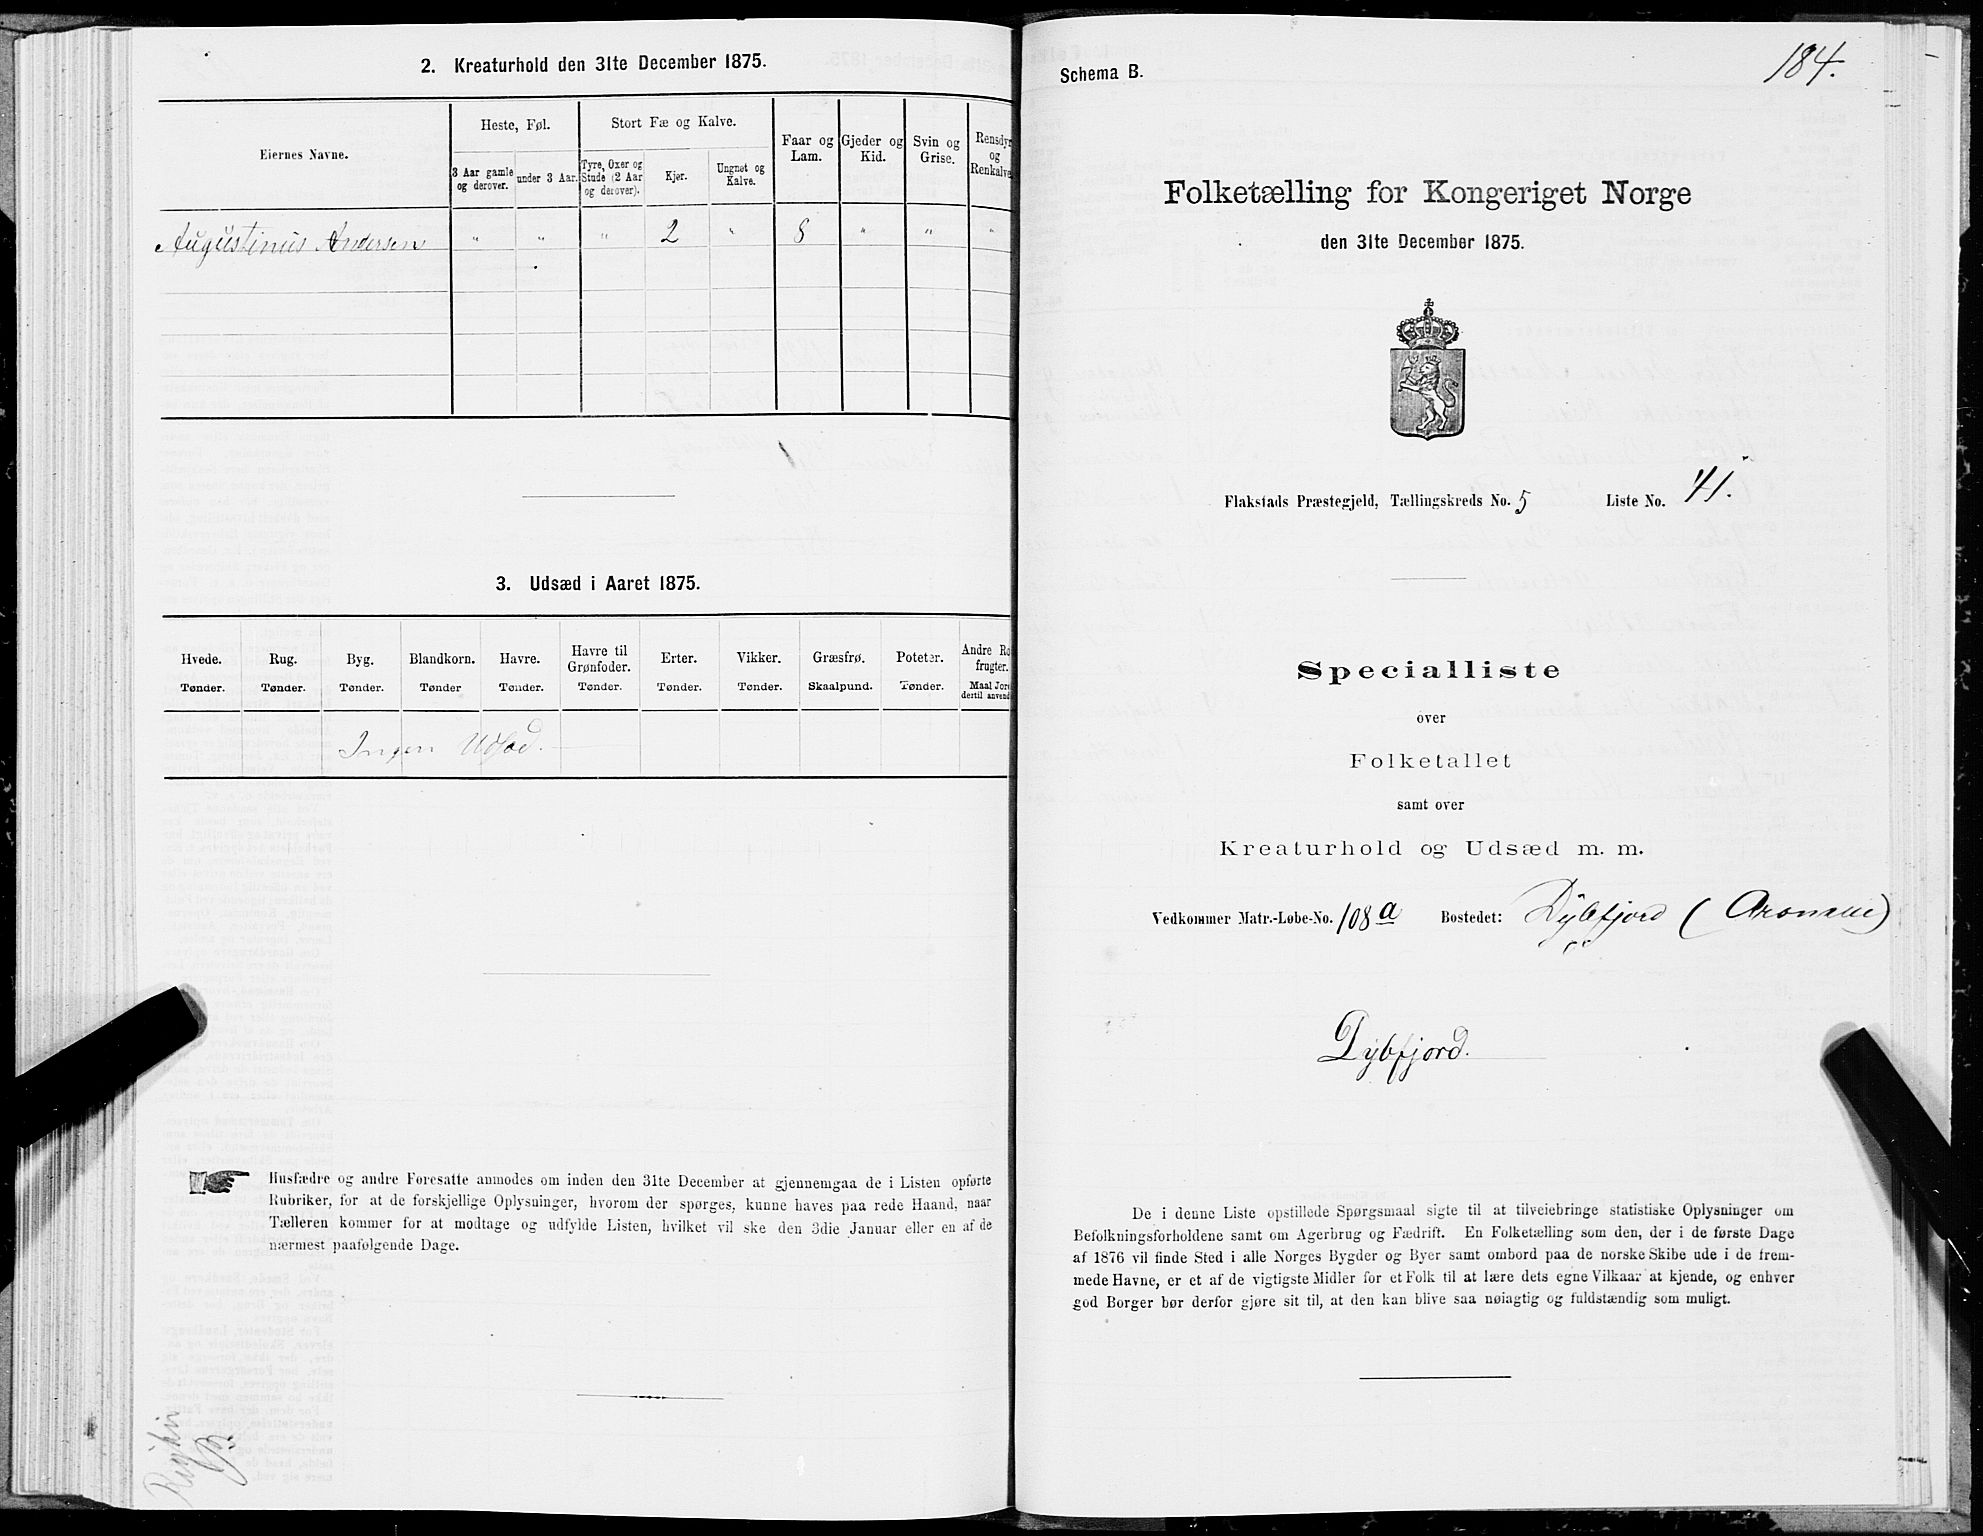 2. Kreaturhold den 31te December 1875.
Eiernes Navne.
Heste, Føl.
Stort Fæ og Kalve.
Faar og Lam.
Gjeder og Kid.
Svin og Grise.
Rensdyr og Renkalve
3 Aar gamle og derover.
under 3 Aar.
Tyre, Oxer og Stude (2 Aar og derover).
Kjør.
Ungnøt og Kalve.
Augustinus Andersen " " " 2 " 8 " " "
3. Udsæd i Aaret 1875.
Hvede. Rug. Byg. Blandkorn. Havre. Havre til Grønfoder. Erter. Vikker. Græsfrø. Poteter. Andre Ro frugter.
Tønder. Tønder. Tønder. Tønder Tønder. Tønder. Tønder. Tønder. Skaalpund. Tønder. Maal Jord dertil anvend
Ingen Udsæd.
Husfædre og andre Foresatte anmodes om inden den 31te December at gjennemgaa de i Listen opførte
Rubriker, for at de forskjellige Oplysninger, hvorom der spørges, kunne haves paa rede Haand, naar
Tælleren kommer for at modtage og udfylde Listen, hvilket vil ske den 3die Januar eller en af de
nærmest paafølgende Dage.
184.
Schema B.
Folketælling for Kongeriget Norge
den 31te December 1875.
Flakstads Præstegjeld, Tællingskreds No. 5 Liste No. 41.
Specialliste
over
Folketallet
samt over
Kreaturhold og Udsæd m. m.
Vedkommer Matr.-Løbe-No. 108a Bostedet: Dybfjord
Dybfjord.
De i denne Liste opstillede Spørgsmaal sigte til at tilveiebringe statistiske Oplysninger om
Befolkningsforholdene samt om Agerbrug og Fædrift. En Folketælling som den, der i de første Dage
af 1876 vil finde Sted i alle Norges Bygder og Byer samt ombord paa de norske Skibe ude i de frem-
mede Havne, er et af de vigtigste Midler for et Folk til at lære dets egne Vilkaar at kjende, og enhver
god Borger bør derfor gjøre sit til, at den kan blive saa nøiagtig og fuldstændig som muligt.